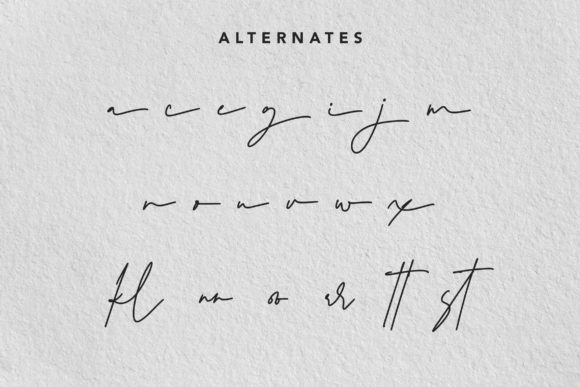 ALTERNATES
a c e g i j m
n o u v w x
kl nn oo ar tt st